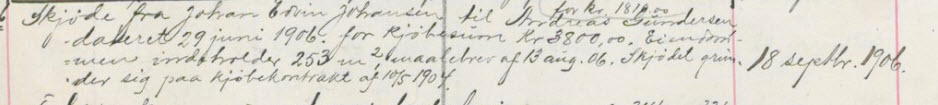 for kr. 1810.00
Skjøde fra Johan Edvin Johansen til Andreas Gundersen
dateret 29 juni 1906. for kjøbesum Kr 3800,00. Eiendom-
men indeholder 253 m², maalebrev af 13 aug. 06. Skjødet grun-
der sig paa kjøbekontrakt af 10/5 1904.
18 septbr. 1906.